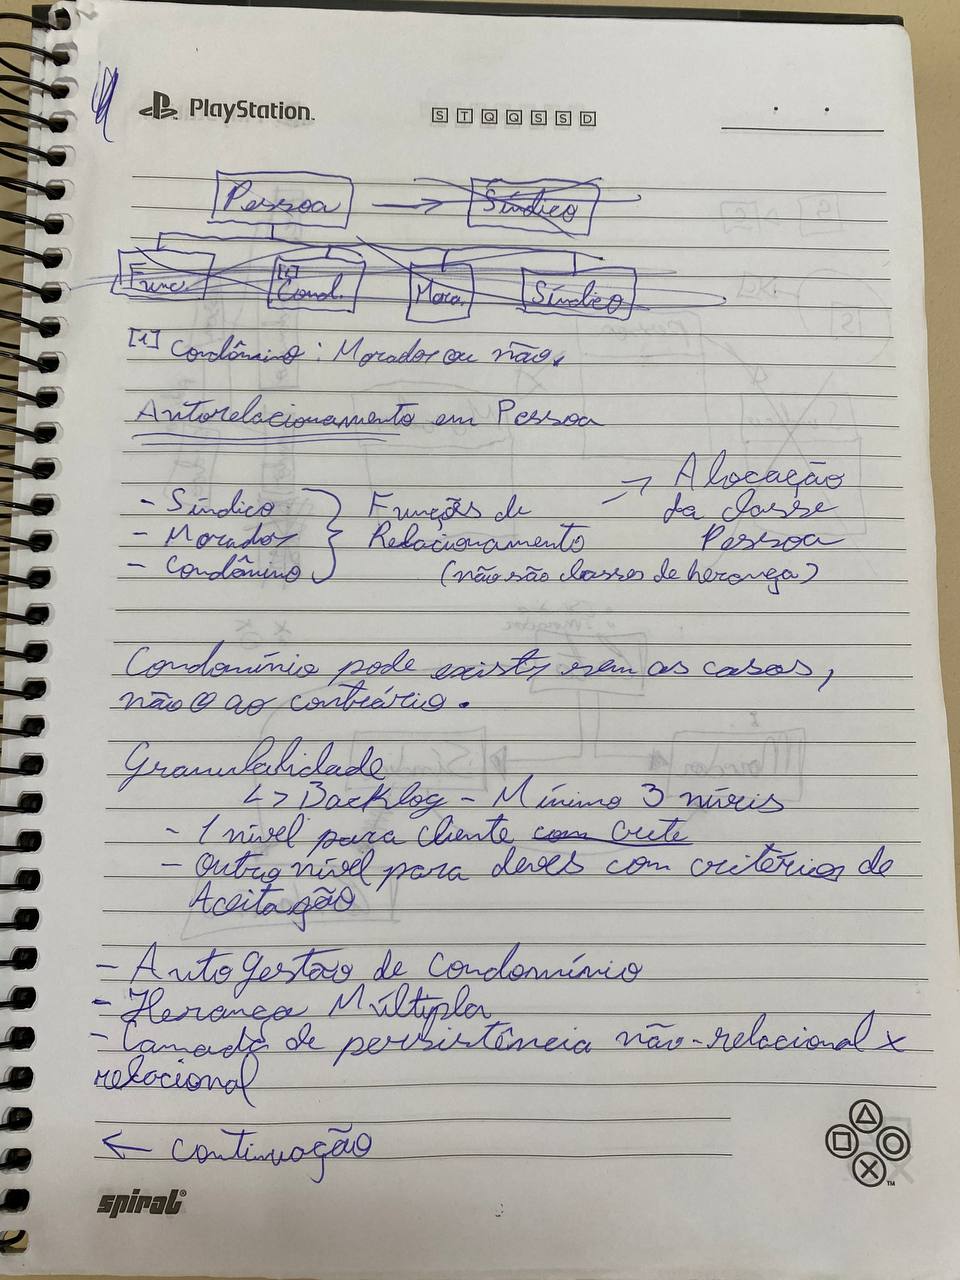 PlayStation
S T Q Q S S D
Pessoa → Síndico
Func. [1] Cond. Mora. Síndico
[1] Condômino: Morador ou não.
Autorelacionamento em Pessoa
- Síndico
- Morador
- Condômino
Funções de
Relacionamento
(não são classes de herança)
→ Alocação
da classe
Pessoa
Condomínio pode existir sem as casas,
não o ao contrário.
Granulalidade
↳ Backlog - Mínimo 3 níveis
- 1 nível para cliente com crite
- Outro nível para deves com critérios de
Aceitação
- Auto Gestão de Condomínio
- Herança Múltipla
- Camada de persistência não-relacional x
relacional
← continuação
spiral